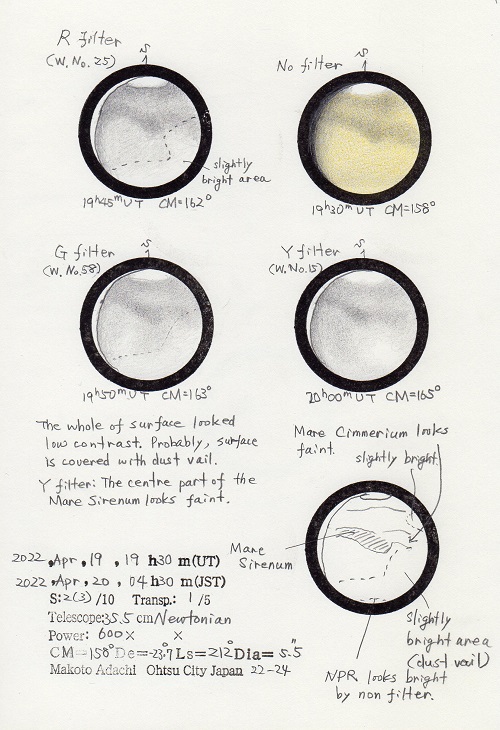 R filter
(W. No. 25)
S
19h45m UT CM=162°
slightly
bright area
No filter
S
19h30m UT CM=158°
G filter
(W. No. 58)
S
19h50m UT CM=163°
Y filter
(W. No. 15)
S
20h00m UT CM=165°
The whole of surface looked
low contrast. Probably, surface
is covered with dust vail.
Y filter: The centre part of the
Mare Sirenum looks faint.
Mare Cimmerium looks
faint.
slightly bright
Mare
Sirenum
slightly
bright area
(dust vail)
NPR looks bright
by non filter.
2022, Apr, 19, 19 h30 m(UT)
2022, Apr, 20, 04 h30 m(JST)
S:2(3)/10 Transp.: 1/5
Telescope:35.5 cm Newtonian
Power: 600× ×
CM=158° De=-23.7 Ls=212° Dia= 5.5"
Makoto Adachi Ohtsu City Japan 22-24